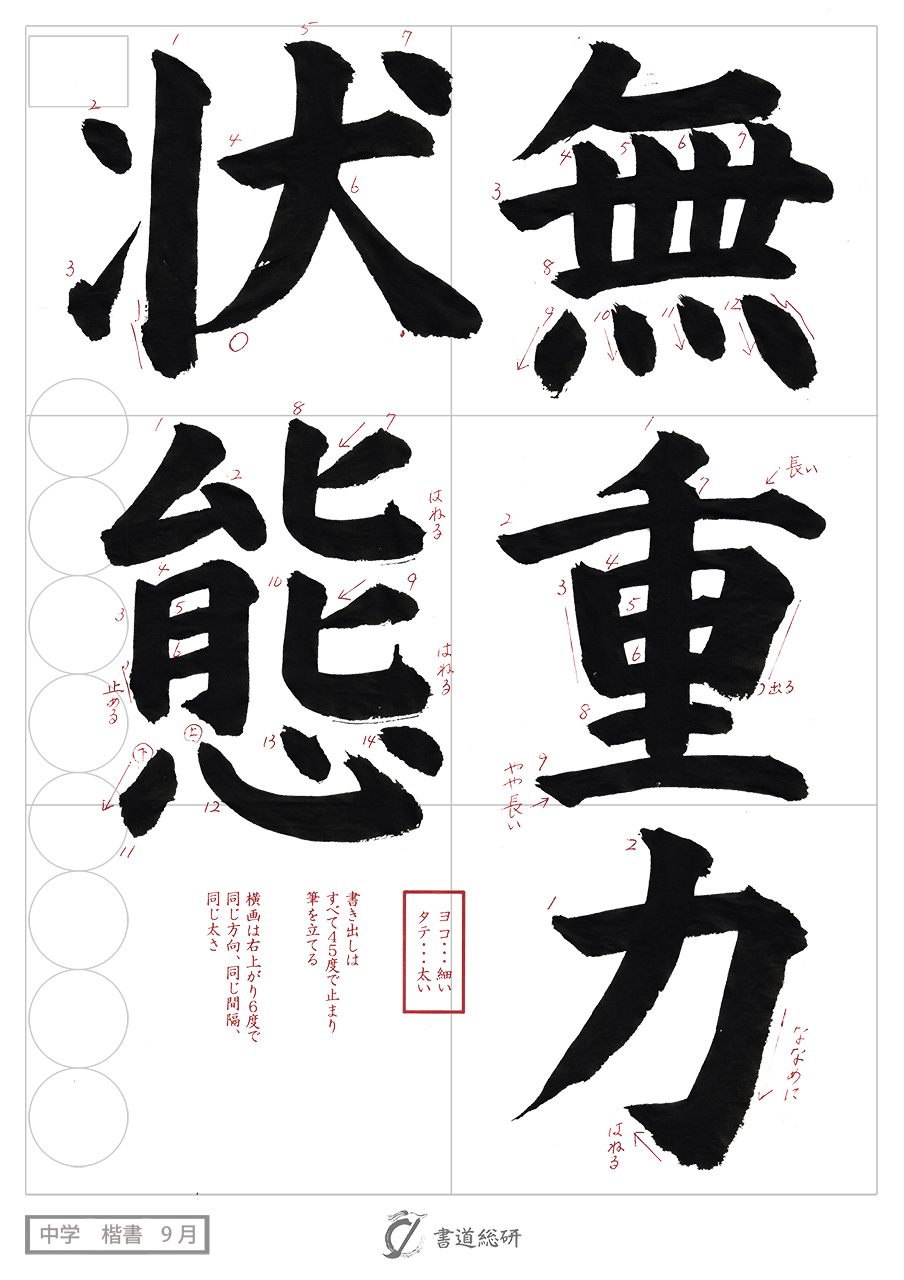 無重力
状態
長い
出る
やや長い
ななめに
はねる
はねる
はねる
止める
上
下
ヨコ・・・細い
タテ・・・太い
書き出しは
すべて45度で止まり
筆を立てる
横画は右上がり6度で
同じ方向、同じ間隔、
同じ太さ
中学 楷書 9月
書道総研